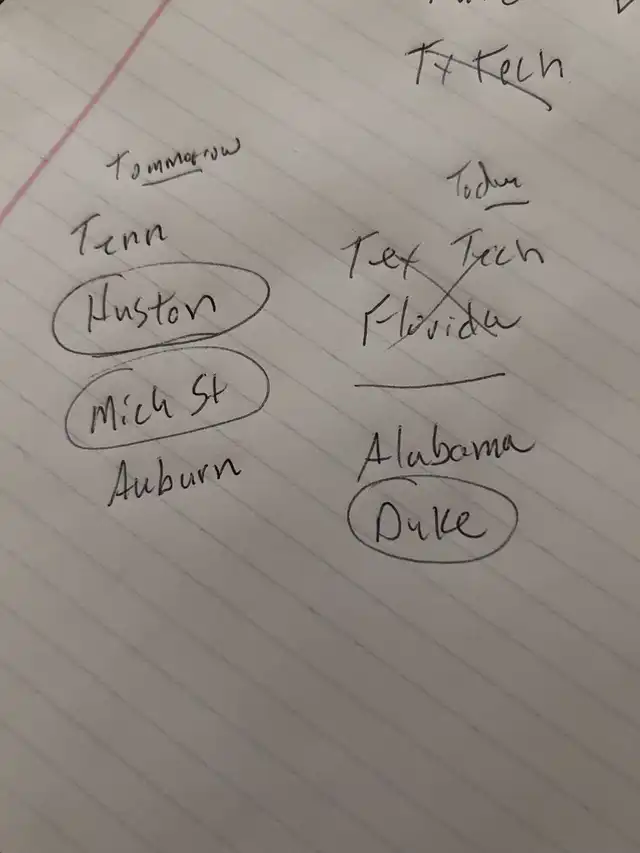 Tx Tech
Tommorrow
Tenn
Huston
Mich St
Auburn
Today
Tex Tech
Florida
Alabama
Duke